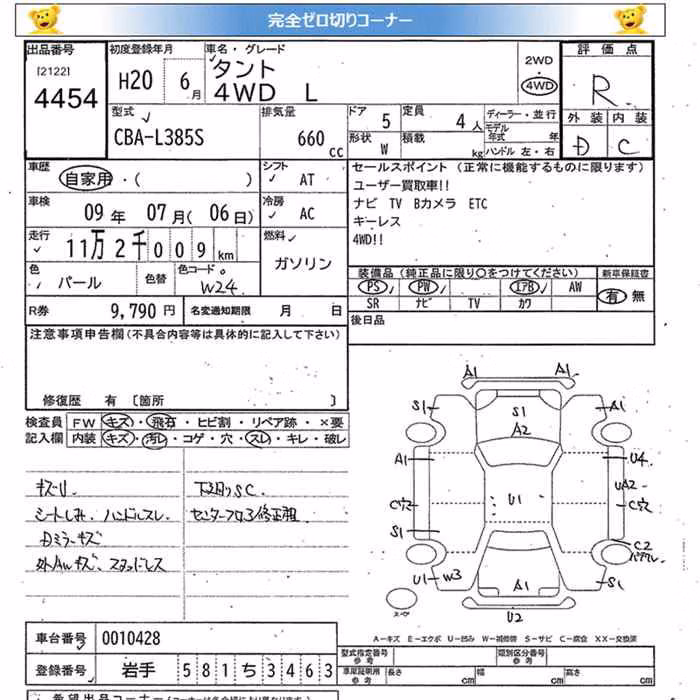 完全ゼロ切りコーナー
出品番号
[2122]
4454
初度登録年月
H20 6月
車名・グレード
タント
4WD L
2WD
4WD
評価点
R
外装 内装
D C
型式
CBA-L385S
排気量
660 cc
ドア 5
定員 4人
形状 W
積載 kg
ディーラー・並行
モデル年式 年
ハンドル 左・右
車歴
自家用・( )
シフト
AT
車検
09年 07月( 06日)
冷房
AC
走行
11万2千009km
燃料
ガソリン
色
パール
色替
色コード
W24
R券 9,790円
名変通知期限 月 日
セールスポイント (正常に機能するものに限ります)
ユーザー買取車!!
ナビ TV Bカメラ ETC
キーレス
4WD!!
装備品(純正品に限り○をつけてください)
新車保証書
PS PW エアB AW
SR ナビ TV カワ
有 無
後日品
注意事項申告欄(不具合内容等は具体的に記入して下さい)
修復歴 有 〔箇所 〕
検査員
記入欄
FW キズ・飛石・ヒビ割・リペア跡・×要
内装 キズ・汚レ・コゲ・穴・スレ・キレ・破レ
キズU
シートしみ、ハンドルスレ
Dミラーキズ
外AWキズ、スタッドレス
下廻りSC
センターフロア修正粗
A1 A1
S1 A1
S1
A2
A1 U4
UA2
C穴 U1 C穴
S1
C2
U1 W3 A1 S1
U2
A−キズ E−エクボ U−凹み W−補修跡 S−サビ C−腐食 XX−交換済
車台番号 0010428
登録番号 岩手 581ち3463
型式指定番号
参考
類別区分番号
参考
車庫証明用
参考
長さ cm 幅 cm 高さ cm
希望出品コーナー